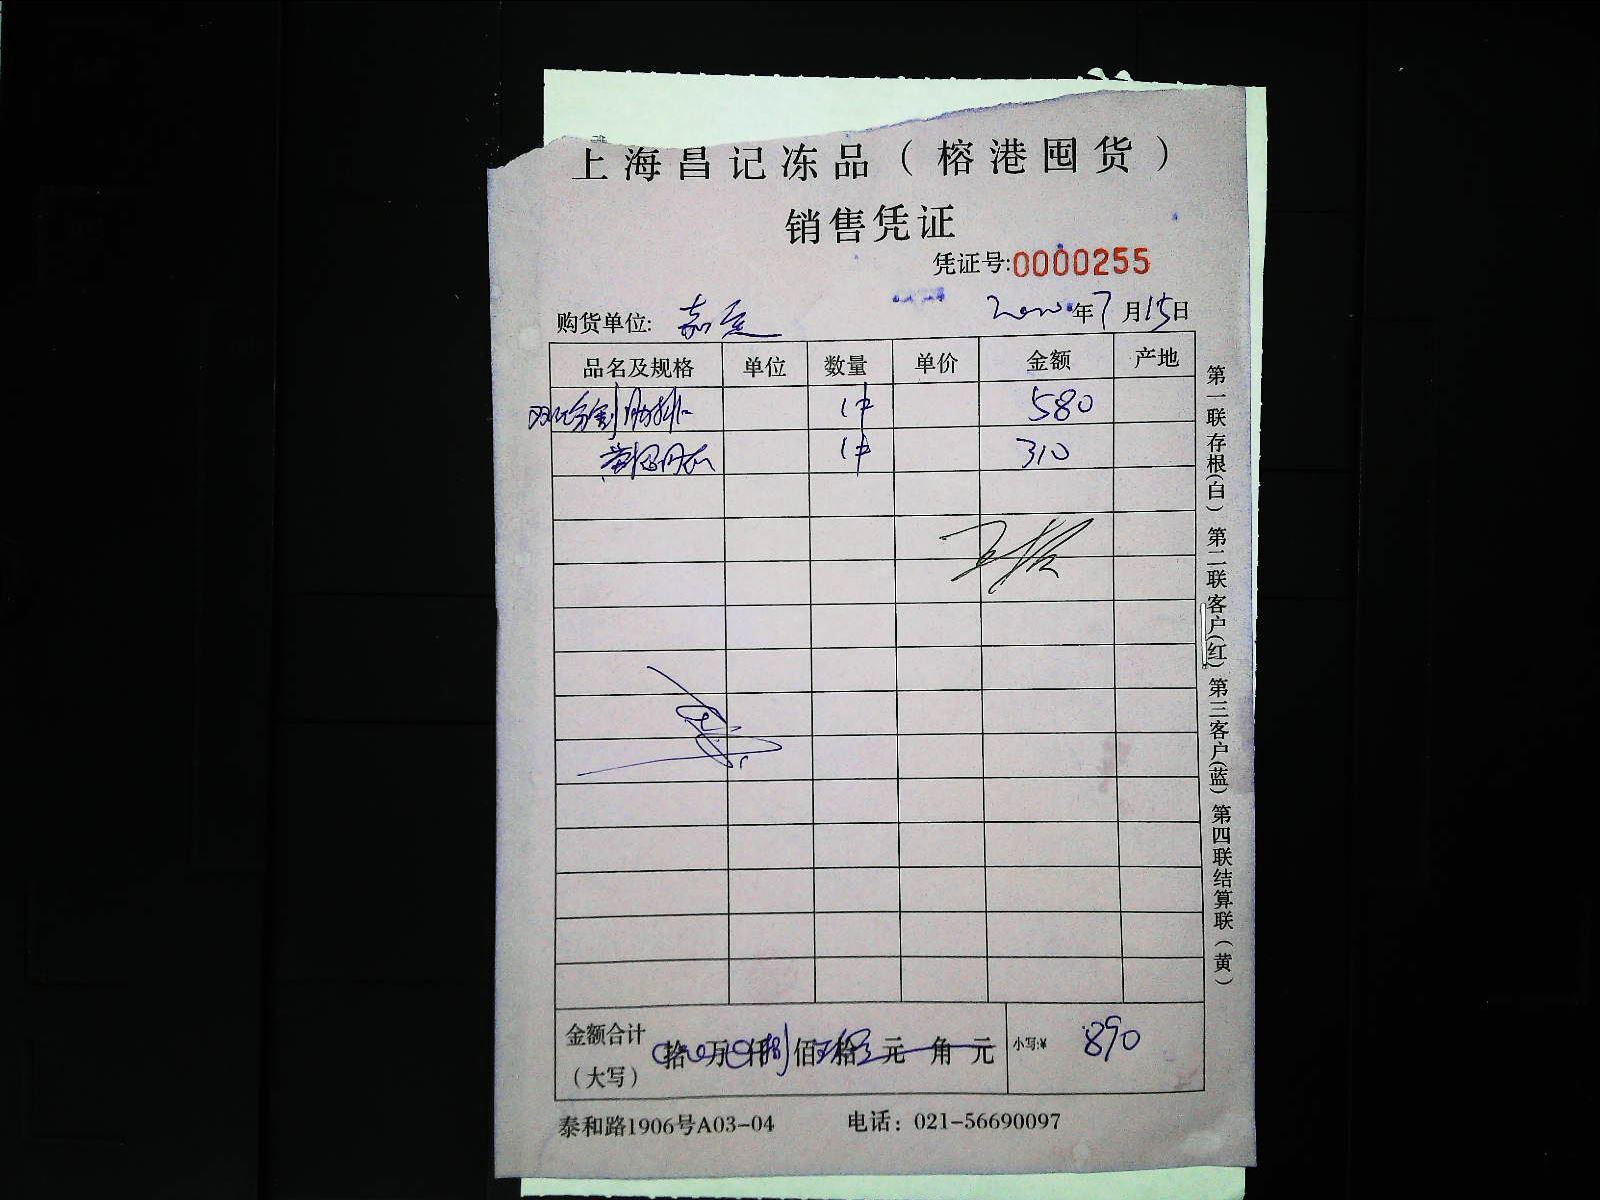 上海昌记冻品（榕港囤货）
销售凭证
凭证号:0000255
购货单位: 嘉 年7月15日
品名及规格 单位 数量 单价 金额 产地
分割肋排 1件 580
1件 310
金额合计（大写） 拾 万 仟捌佰 拾 元 角 元 小写:¥ 890
泰和路1906号A03-04 电话：021-56690097
第一联存根(白) 第二联客户(红) 第三客户(蓝) 第四联结算联(黄)